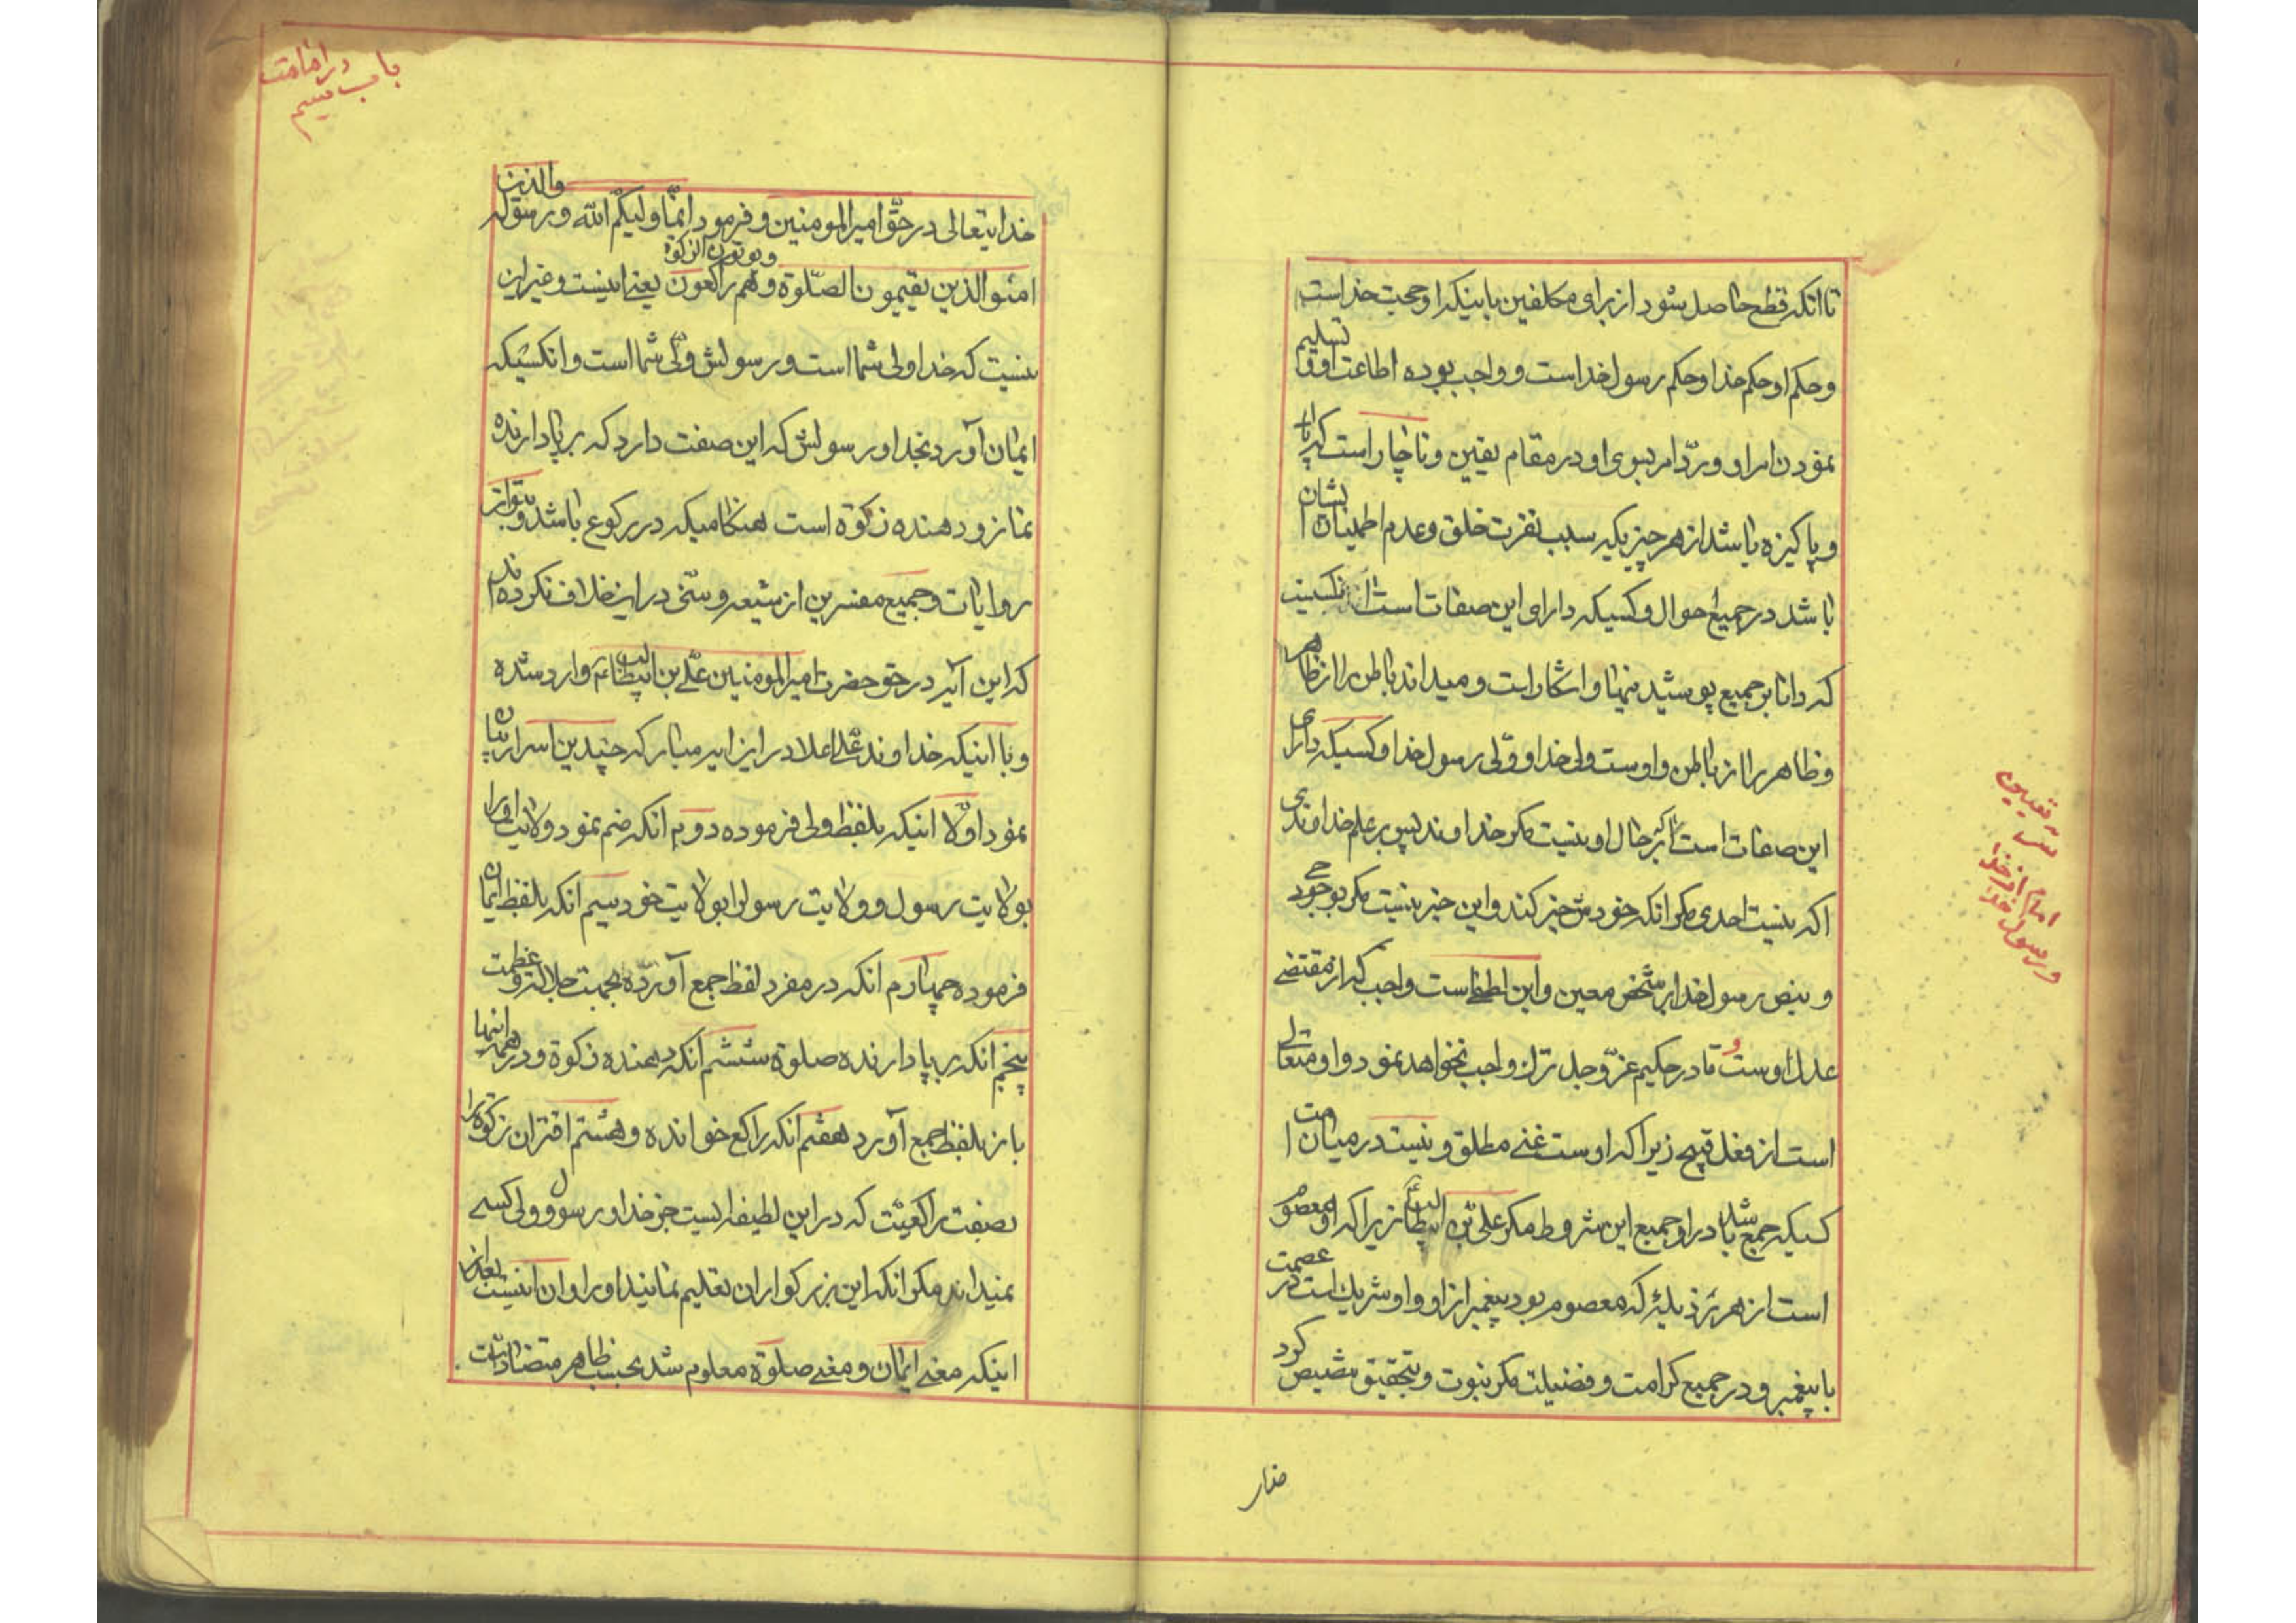 تا انکه قطع حاصل شود از برای مکلفین باینکه او حجت خداست
و حکم او حکم خدا و حکم رسول خداست و واجب بوده اطاعت او و تسلیم
نمودن امر او و ردّ امر بسوی او در مقام یقین و ناچار است که پاک
و پاکیزه باشد از هر چیزیکه سبب نفرت خلق و عدم اطمینان ایشان
باشد در جمیع احوال و کسیکه دارای این صفات است
که دانا بر جمیع پوشیده نیها و اشکار است و میداند باطن را از ظاهر
و ظاهر را از باطن و اوست ولی خدا و ولّی رسول خدا و کسیکه دارای
این صفات است بر حال او نیست مکر خداوند پس بر علم خداوندی
اکه نیست احدی مکر انکه خودش خبر کند و این خبر نیست مکر بوحی خود
و بنص رسول خدا بر شخص معین و این لطف است واجب که از مقتضی
عدل اوست و قادر حکیم عزّ و جل ترک واجب نخواهد نمود و او متعالی
است از فعل قبیح زیرا که اوست غنی مطلق و نیست در میان امت
کسیکه جمع باشد در او جمیع این شروط مکر علی بن ابیطالب زیرا که او معصوم
است از هر رذیله که معصوم بود پیغمبر از او و او شریک است در عصمت
با پیغمبر و در جمیع کرامت و فضیلت مکر نبوت و بتحقیق تنصیص کرد
خدا
در تعیین
امام از خدا
و رسول خدا
باب سیم
در امامت
خدایتعالی در حقّ امیر المومنین و فرمود انّما ولیکم الله و رسوله والذین
امنو الذین یقیمون الصّلوة و یوتون الزکوة و هم راکعون یعنی اینست و غیر این
نیست که خدا ولی شما است و رسولش ولّی شما است و انکسیکه
ایمان آورد بخدا و رسولش که این صفت دارد که بر پا دارنده
نماز و دهنده زکوة است هنکامیکه در رکوع باشد و بتواتر
روایات و جمیع مفسرین از شیعه و سنّی در این خلاف نکرده اند
که این آیه در حق حضرت امیر المومنین علّی بن ابیطالب ع وارد شده
و با اینکه خداوند علّی اعلا در این ایه مبارکه چندین اسرار بیان
نمود اوّلا اینکه بلفظ ولی فرموده دویم انکه ضم نمود ولایت او را
بولایت رسول و ولایت رسول را بولایت خود سیم انکه بلفظ ایمان
فرموده چهارم انکه در مفرد لفظ جمع آورده بجهت جلالت و عظمت
پنجم انکه بر پا دارنده صلوة ششم انکه دهنده زکوة و در همه اینها
باز بلفظ جمع آورد هفتم انکه راکع خوانده و هشتم اقتران زکوة را
بصفت راکعیّت که در این لطیفه ایست جز خدا و رسول و ولی کسی
نمیداند مکر انکه این بزرکواران تعلیم نمایند او را و ان اینست بعد از
اینکه معنی ایمان و معنی صلوة معلوم شد بحسب ظاهر متضاد است